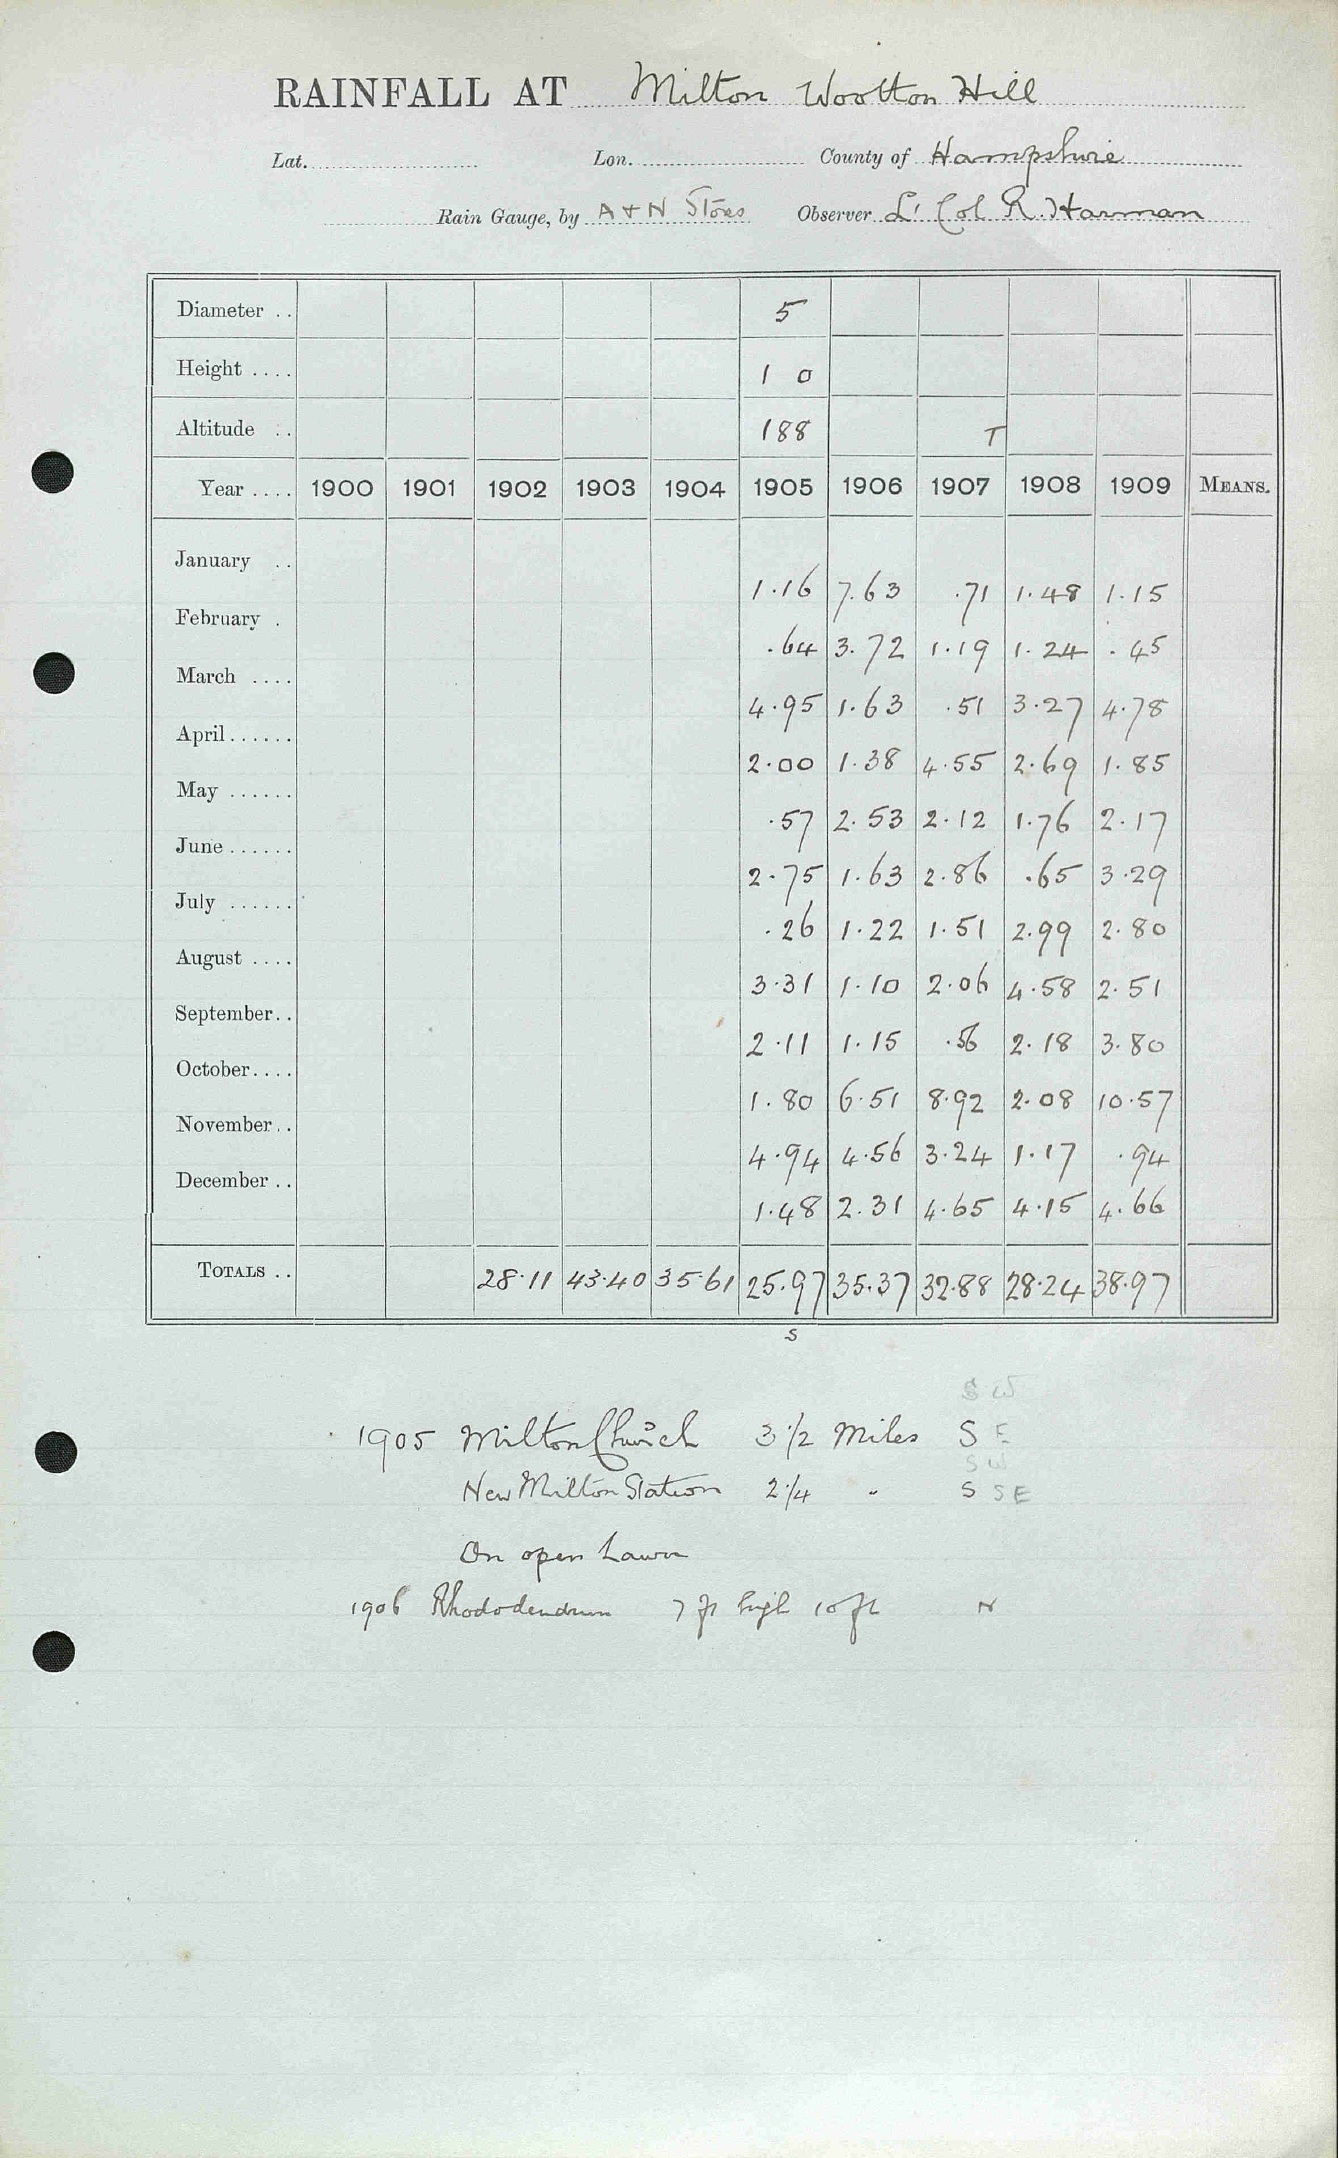 RAINFALL AT Milton Wootton Hill
Lat. Lon. County of Hampshire
Rain Gauge, by A + N Stores Observer Lt Col R. Harman
Diameter . . 5
Height . . . . 1 0
Altitude . . 188 T
Year . . . . 1900 1901 1902 1903 1904 1905 1906 1907 1908 1909 MEANS.
January . . 1.16 7.63 .71 1.48 1.15
February . .64 3.72 1.19 1.24 .45
March . . . . 4.95 1.63 .51 3.27 4.78
April . . . . . . 2.00 1.38 4.55 2.69 1.85
May . . . . . . .57 2.53 2.12 1.76 2.17
June . . . . . . 2.75 1.63 2.86 .65 3.29
July . . . . . . .26 1.22 1.51 2.99 2.80
August . . . . 3.31 1.10 2.06 4.58 2.51
September. . 2.11 1.15 .56 2.18 3.80
October. . . . 1.80 6.51 8.92 2.08 10.57
November. . 4.94 4.56 3.24 1.17 .94
December . . 1.48 2.31 4.65 4.15 4.66
TOTALS . . 28.11 43.40 35.61 25.97 35.37 32.88 28.24 38.97
S
S W
1905 Milton Church 3 1/2 Miles S E
S W
New Milton Station 2 1/4 " S S E
On open Lawn
1906 Rhododendrum 7 ft high 10 ft N